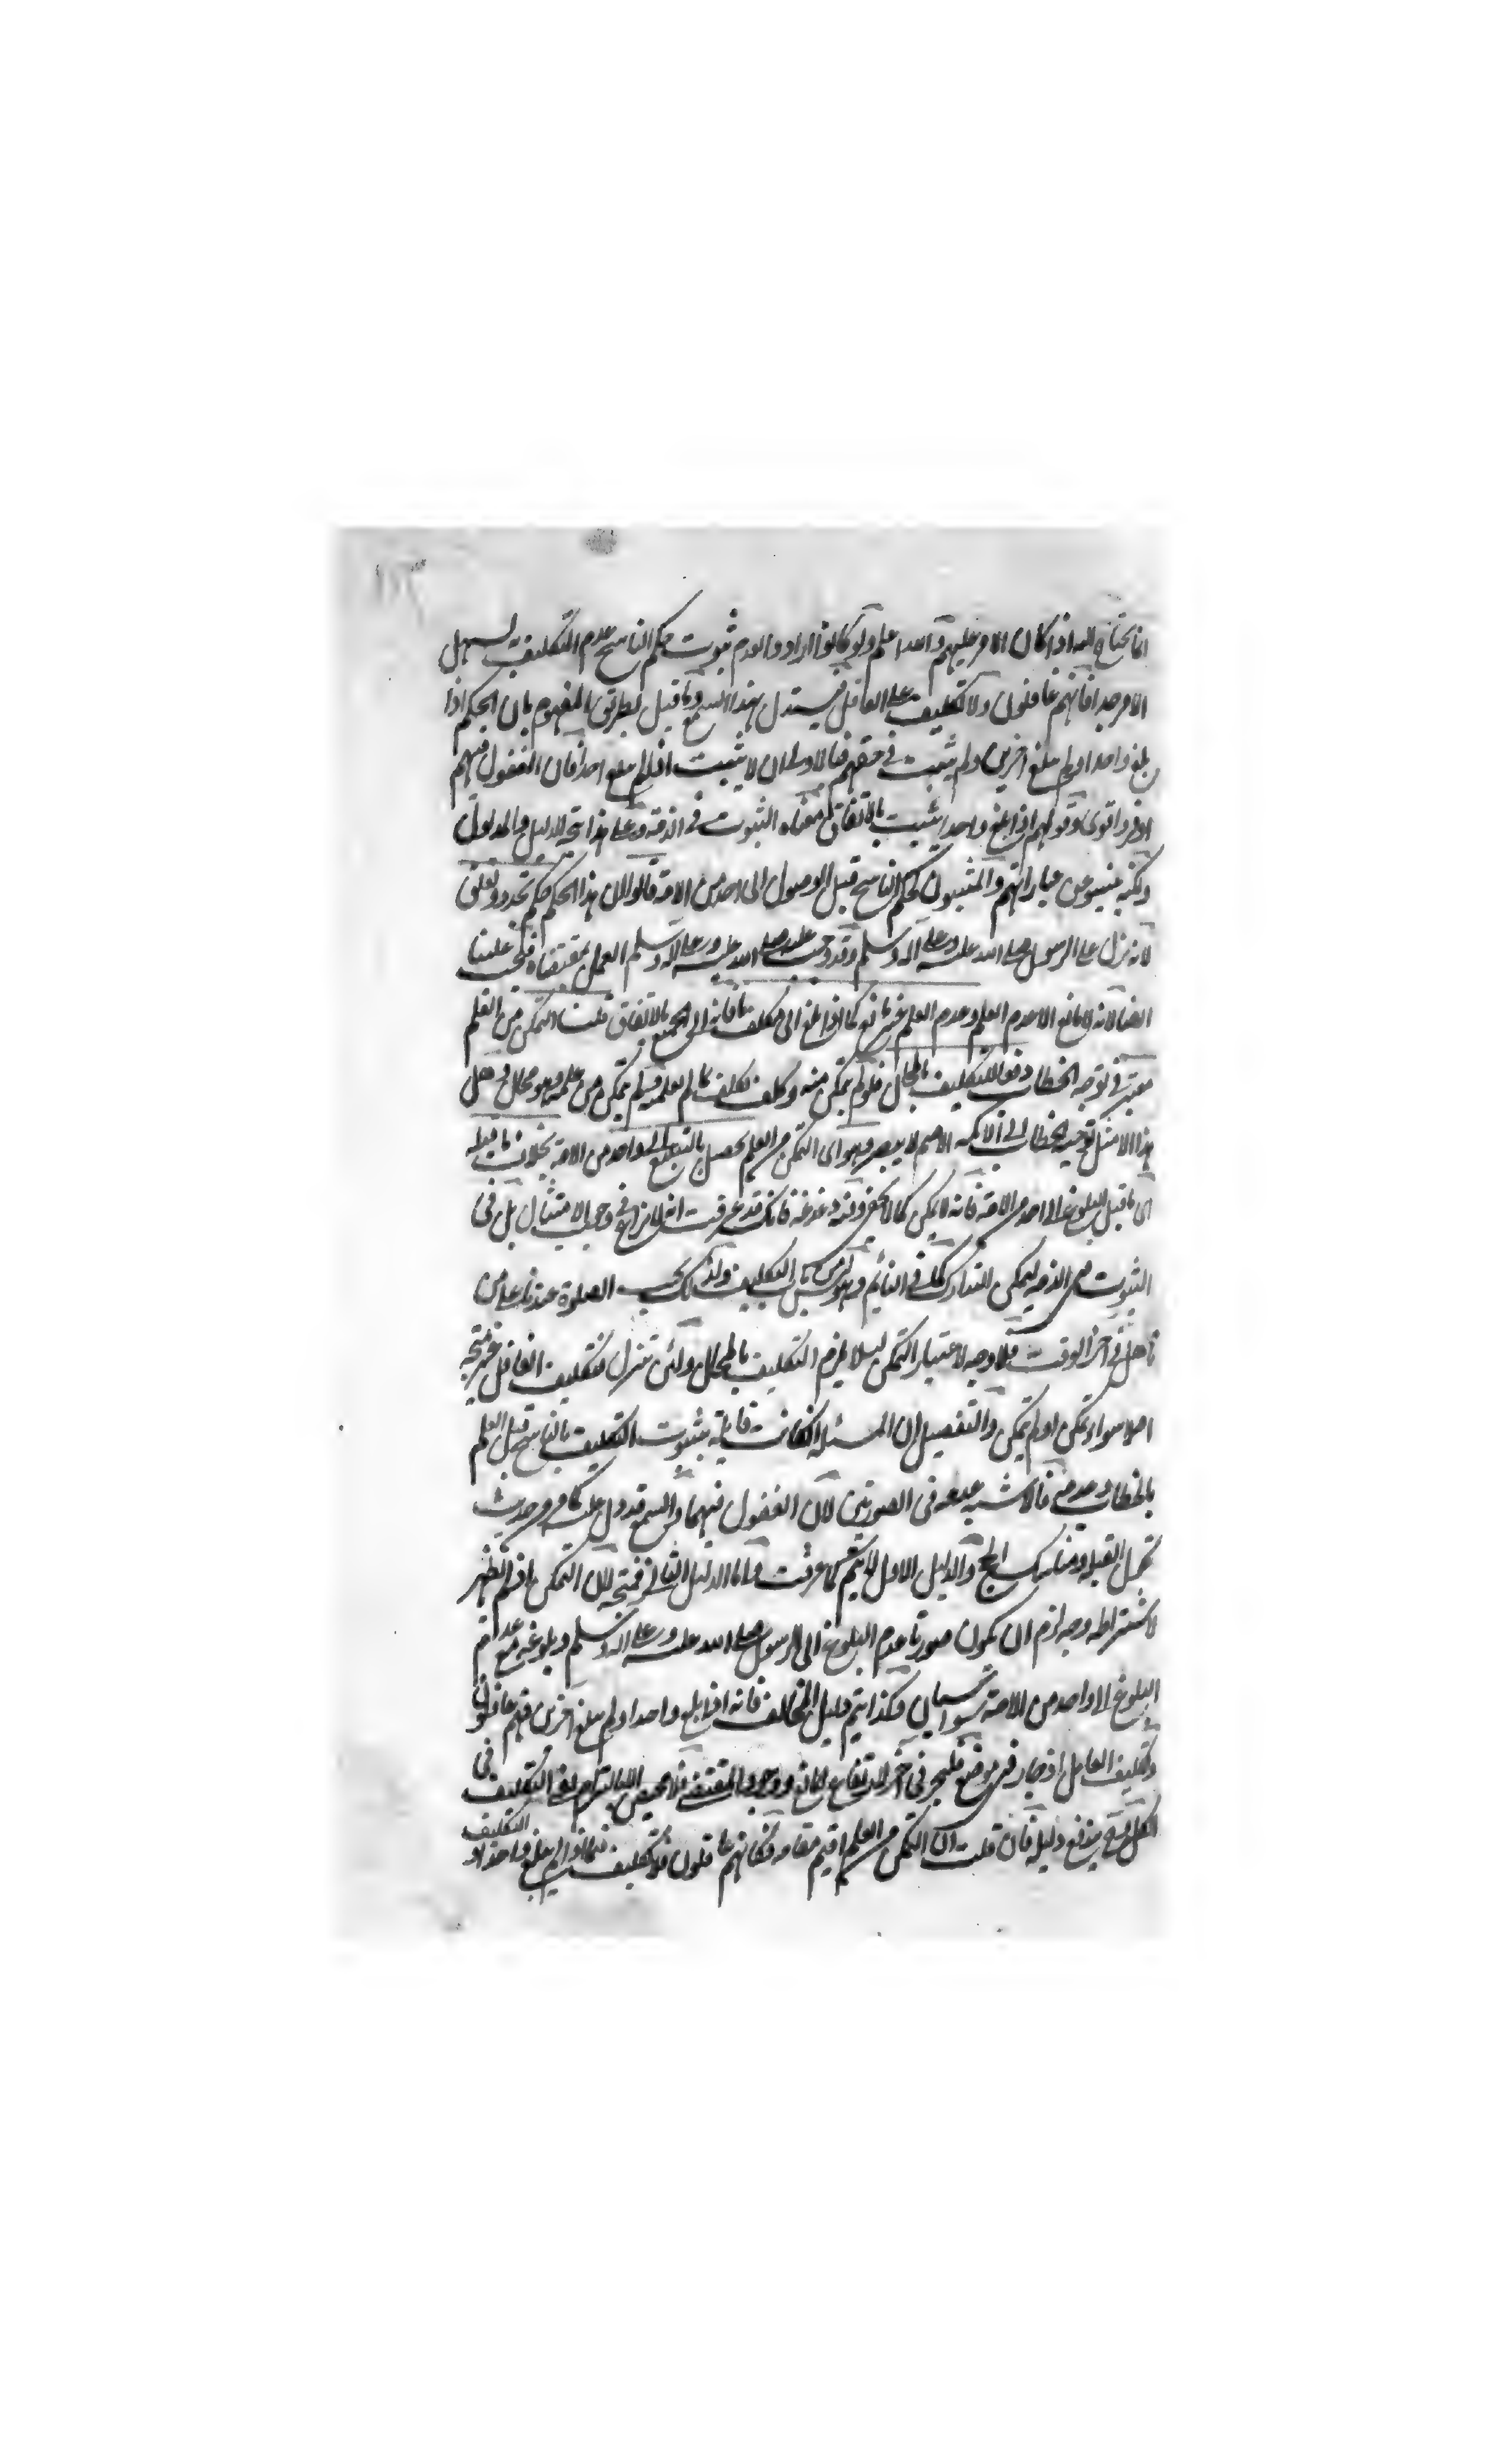 انما يحتاج اليه اذا كان الامر عليهم والله اعلم ولو كانوا ارادوا بعدم ثبوت حكم الناسخ عدم التكليف لسهل
الامر جدا فانهم غافلون ولا تكليف على الغافل فيستدل بهذا السمع وما قيل بطريق المفهوم بان الحكم اذا
بلغ واحدا ولم يبلغ اخرين ولم يثبت في حقهم فالاولى ان لا يثبت اذا لم يبلغ احدا فان الغفول فيهم
اوفر واقوى وقولهم اذا بلغ واحدا يثبت بالاتفاق معناه الثبوت في الذمة وعلى هذا يتم الدليل والمدلول
ولكنه ينبو عن عباراتهم والمثبتون لحكم الناسخ قبل الوصول الى احد من الامة قالوا ان هذا الحكم حكم تجدد وتعلق
لانه نزل على الرسول صلى الله عليه وعلى آله وسلم وقد وجب عليه صلى الله عليه وعلى آله وسلم العمل بمقتضاه فيجب علينا
ايضا لانه لا مانع الا عدم العلم وعدم العلم غير مانع كما اذا بلغ الى مكلف ما فانه الى الجميع بالاتفاق قلت التمكن من العلم
معتبر في توجه الخطاب دفعا للتكليف بالمحال فلو لم يتمكن منه وكلف لكلف بما لم يعلمه ولم يتمكن من علمه وهو محال وهل
هذا الا مثل توجيه الخطاب الى الاكمه الاصم لا يبصر وهو اى التمكن من العلم يحصل بالتبليغ الى واحد من الامة بخلاف ما قبله
اى ما قبل البلوغ الى احد من الامة فانه لا يمكن كما لا يخفى وفيه دغدغة فانك قد عرفت انه لا نزاع في وجوب الامتثال بل في
الثبوت في الذمة ليمكن التدارك كما في النائم وهو ليس من باب التكليف ولذلك يجب الصلوة عندنا على من
تاهل في آخر الوقت فلا وجه لاعتبار التمكن لئلا يلزم التكليف بالمحال ولئن تنزل فتكليف الغافل غير متجه
اصلا سواء تمكن او لم يتمكن والتفصيل ان المسئلة ان كانت قابلة بثبوت التكليف بالناسخ قبل العلم
بالخطاب وعدمه فالاشبه عدمه في الصورتين لان الغفول فيهما والسمع قد دل عليه كما مر من حديث
تحول القبلة ومناسك الحج والدليل الاول لا يتم كما عرفت واما الدليل الثاني فمتجه لان التمكن اذ لم يظهر
لاشتراطه وجه لزم ان يكون صورتا عدم البلوغ الى الرسول صلى الله عليه وعلى آله وسلم وبلوغه مع عدم
البلوغ الى واحد من الامة سواسيان وكذا يتم دليل المخالف فانه اذا بلغ واحدا ولم يبلغ اخرين فهم غافلون
وتكليف الغافل اذ جاز في موضع فليجز في آخر لارتفاع المانع ووجود المقتضى فلا محيص الا بالتزام نفي التكليف في
الكل وحينئذ يندفع دليله فان قلت ان التمكن من العلم اقيم مقامه فكانهم ما غفلوا فلا تكليف فيما اذا لم يبلغ واحدا والتكليف